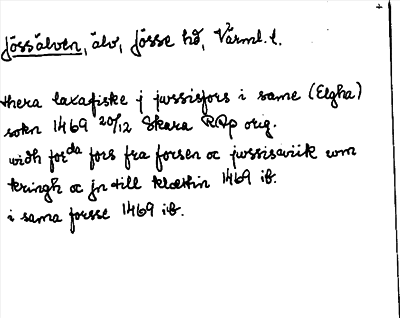 Jössälven, älv, Jösse hd, Värml. l.
thera laxafiske j jwssisfors i same (Elgha)
sokn 1469 20/12 Skara RAp orig.
widh forda fors fra forsen oc jwssisawiik wm
kringh oc jn till klæthin 1469 ib.
i sama forsse 1469 ib.